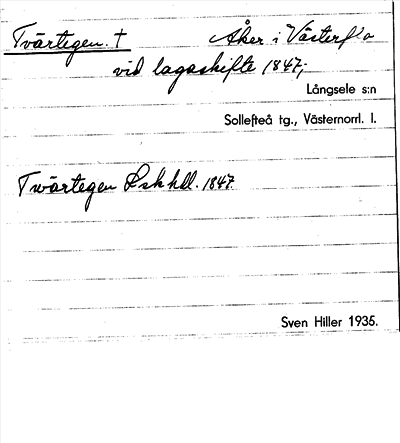 Tvärtegen. † Åker i Västerfl a
vid lagaskifte 1847;
Långsele s:n
Sollefteå tg., Västernorrl. l.
Tvärtegen Lskhdl. 1847.
Sven Hiller 1935.